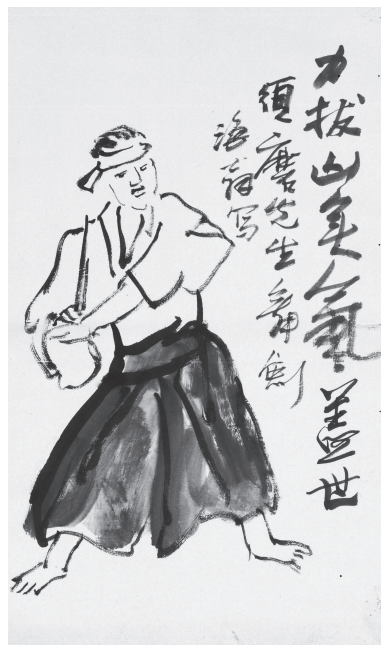 力拔山兮氣蓋世
須磨先生舞劍
海翁写